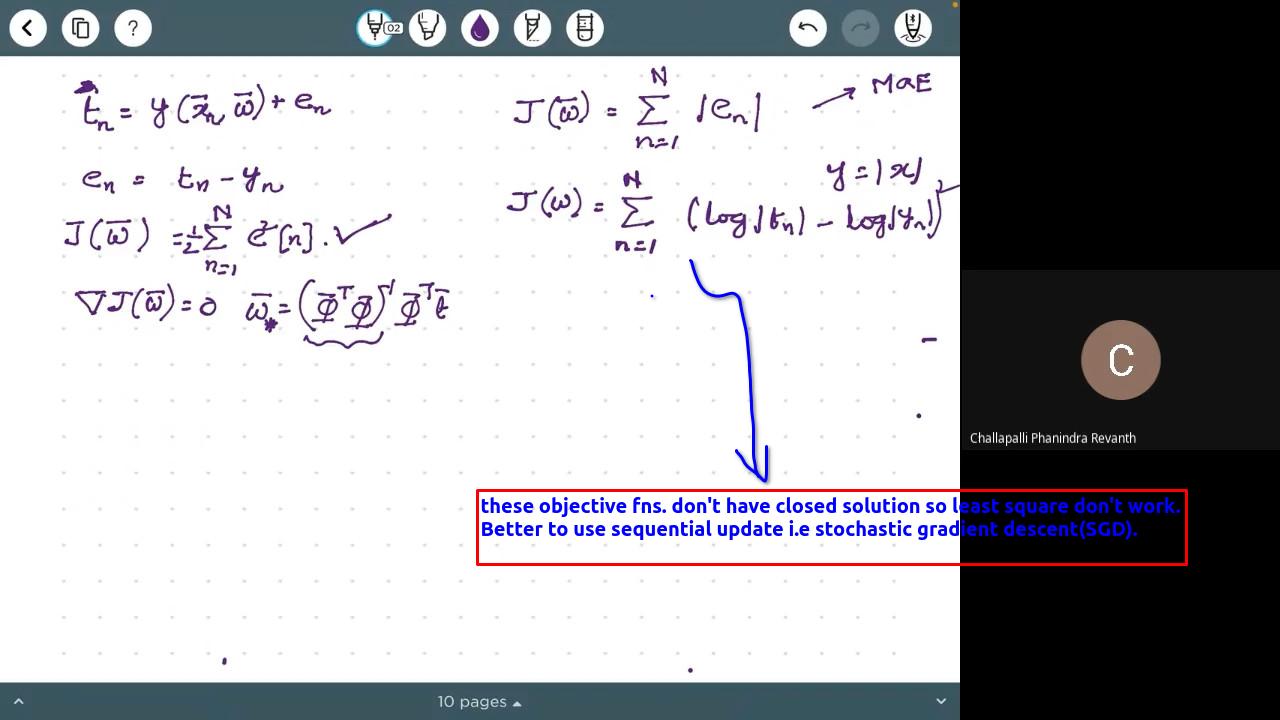 02
t̄_n = y(x̄_n, ω̄) + e_n
e_n = t_n - y_n
J(ω̄) = 1/2 Σ_{n=1}^{N} e²[n].
∇J(ω̄) = 0 ω̄_* = (Φ̄ᵀ Φ̄)⁻¹ Φ̄ᵀ t̄
J(ω̄) = Σ_{n=1}^{N} |e_n| → MAE
y = |x|
J(ω) = Σ_{n=1}^{N} (log|t_n| - log|y_n|)²
these objective fns. don't have closed solution so least square don't work.
Better to use sequential update i.e stochastic gradient descent(SGD).
C
Challapalli Phanindra Revanth
10 pages